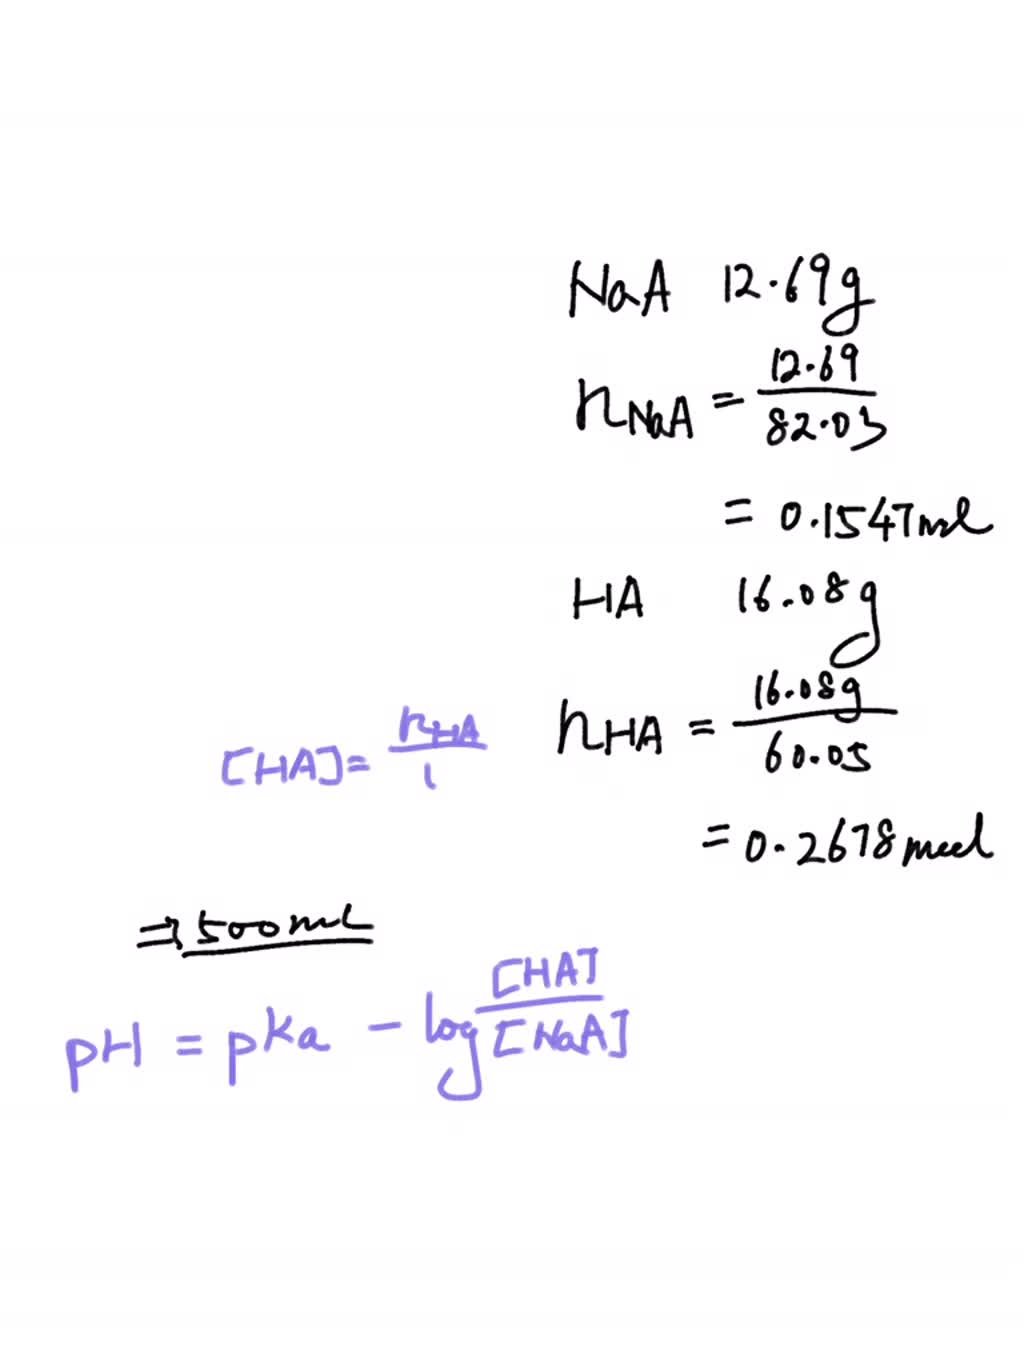 NaA 12.69g
n_NaA = 12.69 / 82.03
= 0.1547 mol
HA 16.08g
n_HA = 16.08g / 60.05
= 0.2678 mol
[HA] = n_HA / 
⇒ 500mL
pH = pKa - log [HA] / [NaA]